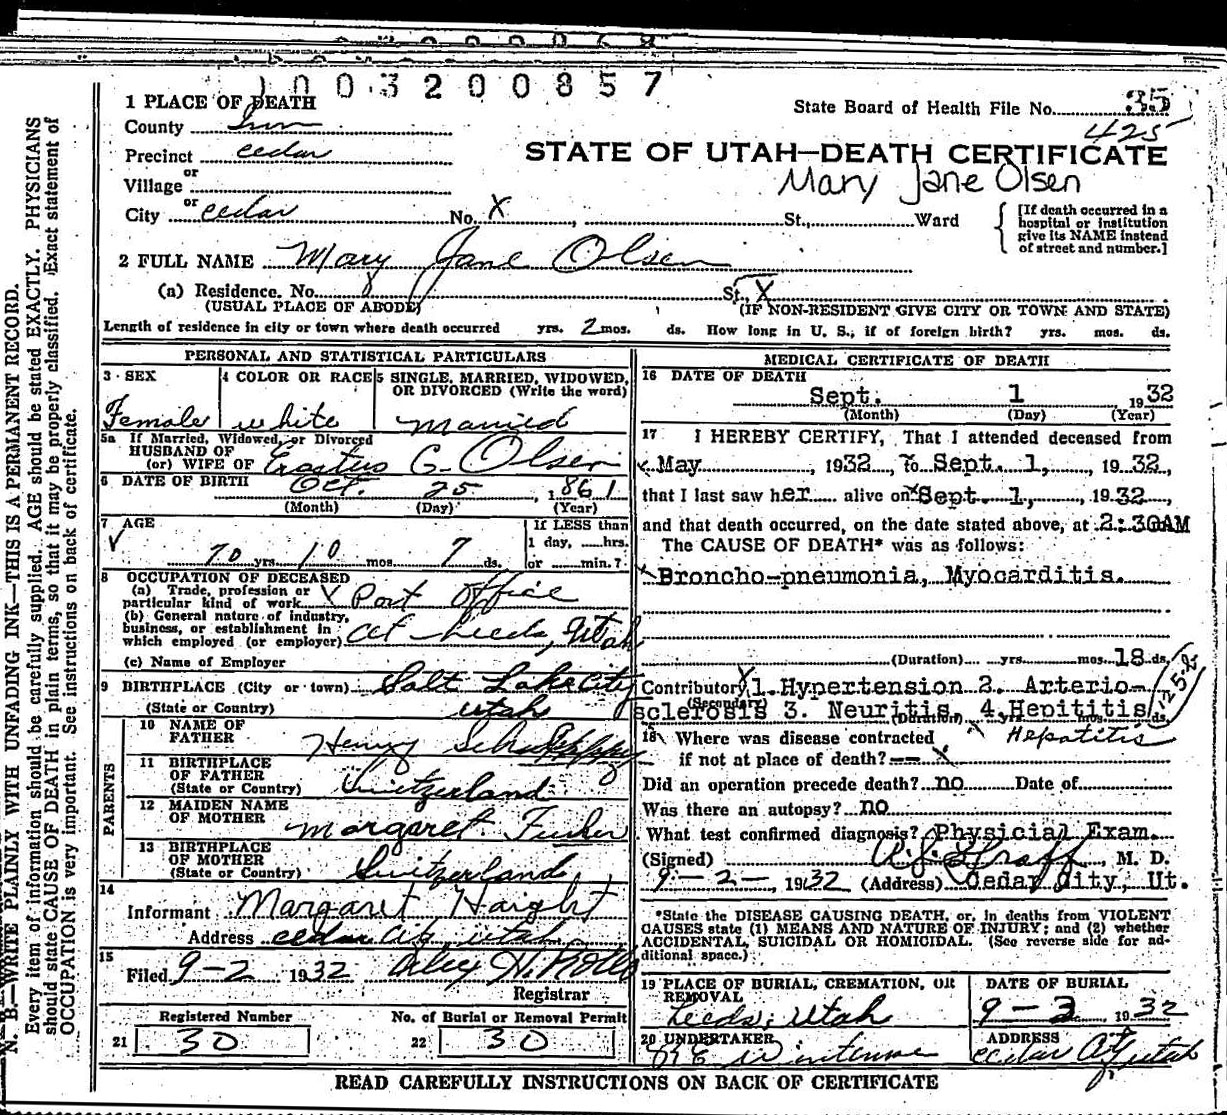 1003200857
1 PLACE OF DEATH
State Board of Health File No. 35
County Iron
425
Precinct cedar
STATE OF UTAH—DEATH CERTIFICATE
or
Village
Mary Jane Olsen
or
City cedar No. X St., Ward
[If death occurred in a
hospital or institution
give its NAME instead
of street and number.]
2 FULL NAME Mary Jane Olsen
(a) Residence. No. St., X
(USUAL PLACE OF ABODE) (IF NON-RESIDENT GIVE CITY OR TOWN AND STATE)
Length of residence in city or town where death occurred yrs. 2 mos. ds. How long in U. S., if of foreign birth? yrs. mos. ds.
PERSONAL AND STATISTICAL PARTICULARS
3 SEX
Female
4 COLOR OR RACE
white
5 SINGLE, MARRIED, WIDOWED,
OR DIVORCED (Write the word)
married
5a If Married, Widowed, or Divorced
HUSBAND OF
(or) WIFE OF Erastus C. Olsen
6 DATE OF BIRTH Oct. 25, 1861
(Month) (Day) (Year)
7 AGE
If LESS than
1 day, hrs.
70 yrs. 10 mos. 7 ds. or min.?
8 OCCUPATION OF DECEASED
(a) Trade, profession or
particular kind of work Post Office
(b) General nature of industry,
business, or establishment in
which employed (or employer) at Leeds, Utah
(c) Name of Employer
9 BIRTHPLACE (City or town) Salt Lake City
(State or Country) Utah
PARENTS
10 NAME OF
FATHER Henry
11 BIRTHPLACE
OF FATHER
(State or Country) Switzerland
12 MAIDEN NAME
OF MOTHER Margaret
13 BIRTHPLACE
OF MOTHER
(State or Country) Switzerland
14
Informant Margaret Haight
Address cedar City, Utah
15
Filed 9-2 1932
Registrar
Registered Number No. of Burial or Removal Permit
21 30 22 30
MEDICAL CERTIFICATE OF DEATH
16 DATE OF DEATH
Sept. 1 1932
(Month) (Day) (Year)
17 I HEREBY CERTIFY, That I attended deceased from
May, 1932, To Sept. 1, 1932,
that I last saw her alive on Sept. 1, 1932,
and that death occurred, on the date stated above, at 2:30AM
The CAUSE OF DEATH* was as follows:
Broncho-pneumonia, Myocarditis.
(Duration) yrs. mos. 18 ds.
Contributory 1. Hypertension 2. Arterio-
(Secondary)
sclerosis 3. Neuritis 4. Hepititis
(Duration) yrs. mos. ds.
Hepatitis
18 Where was disease contracted
if not at place of death? --
Did an operation precede death? no Date of
Was there an autopsy? no
What test confirmed diagnosis? Physicial Exam.
(Signed) A.J. Graff, M. D.
9-2-, 1932 (Address) Cedar City, Ut.
*State the DISEASE CAUSING DEATH, or, in deaths from VIOLENT
CAUSES state (1) MEANS AND NATURE OF INJURY; and (2) whether
ACCIDENTAL, SUICIDAL OR HOMICIDAL. (See reverse side for ad-
ditional space.)
19 PLACE OF BURIAL, CREMATION, OR
REMOVAL
Leeds, Utah
DATE OF BURIAL
9-3 1932
20 UNDERTAKER
ADDRESS
cedar City Utah
READ CAREFULLY INSTRUCTIONS ON BACK OF CERTIFICATE
N. B.—WRITE PLAINLY WITH UNFADING INK—THIS IS A PERMANENT RECORD.
Every item of information should be carefully supplied. AGE should be stated EXACTLY. PHYSICIANS
should state CAUSE OF DEATH in plain terms, so that it may be properly classified. Exact statement of
OCCUPATION is very important. See instructions on back of certificate.